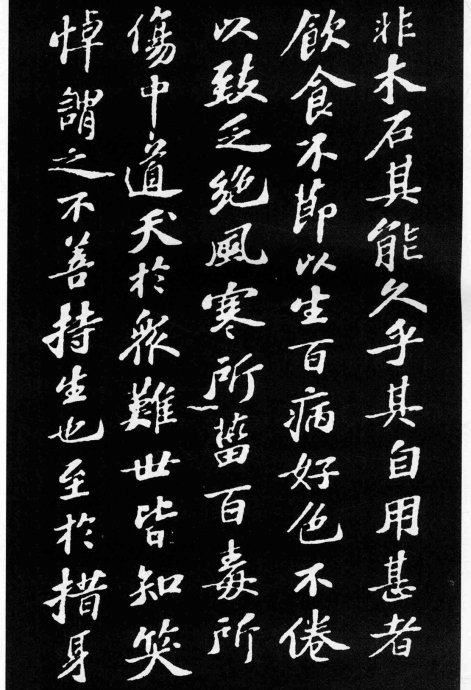 非木石其能久乎其自用甚者
飲食不節以生百病好色不倦
以致乏絕風寒所菑百毒所
傷中道夭於衆難世皆知笑
悼謂之不善持生也至於措身